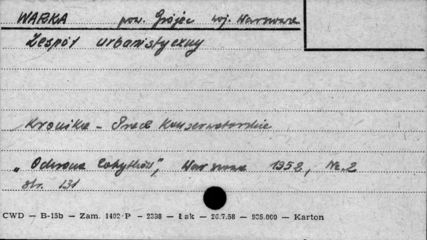 WARKA pow. Grójec woj. Warszawa
Zespół urbanistyczny
Kronika - Prace Konserwatorskie
"Ochrona Zabytków", Warszawa 1952, Nr. 2
str. 131
CWD — B-15b — Zam. 1492-P — 2338 — Łak — 26.7.58 — 935.000 — Karton